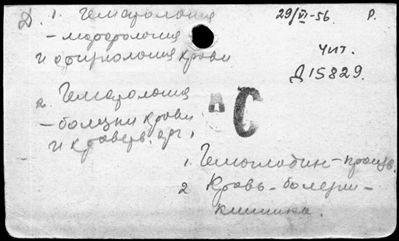 Д 1. Гематология
29/VI-56. Р.
– морфология
и физиология крови
Чит.
Д15829.
2. Гематология
– болезни крови
и кроветв. орг.
С
1. Гемоглобин – произв.
2 Кровь – болезни –
клиника.